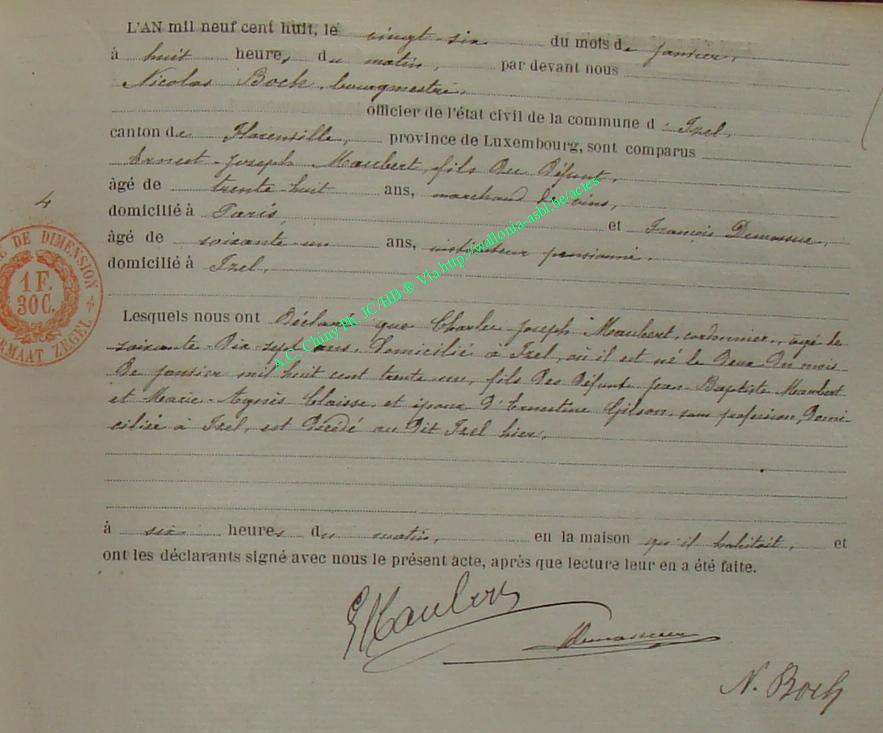 L'AN mil neuf cent huit, le vingt-six du mois de janvier,
à huit heures du matin, par devant nous
Nicolas Boch, bourgmestre,
officier de l'état civil de la commune d'Izel,
canton de Florenville, province de Luxembourg, sont comparus
Ernest-Joseph Maubert, fils du défunt,
âgé de trente-huit ans, marchand de vins,
domicilié à Paris, et François Demasseur,
âgé de soixante-un ans, instituteur pensionné,
domicilié à Izel,
Lesquels nous ont déclaré que Charles-Joseph Maubert, cordonnier, âgé de
soixante-dix-sept ans, domicilié à Izel, où il est né le deux du mois
de janvier mil huit cent trente-un, fils des défunts Jean-Baptiste Maubert
et Marie-Agnès Claisse, et époux d'Ernestine Gilson, sans profession, domi-
ciliée à Izel, est décédé au dit Izel hier,
à six heures du matin, en la maison qu'il habitait, et
ont les déclarants signé avec nous le présent acte, après que lecture leur en a été faite.
E Maubert
Demasseur
N. Boch
4
E DE DIMENSION
1 F.
30 C.
RMAAT ZEGEL
A.C. Chiny Ph. JC/HB ® Via http://wallonia-asbl.be/actes